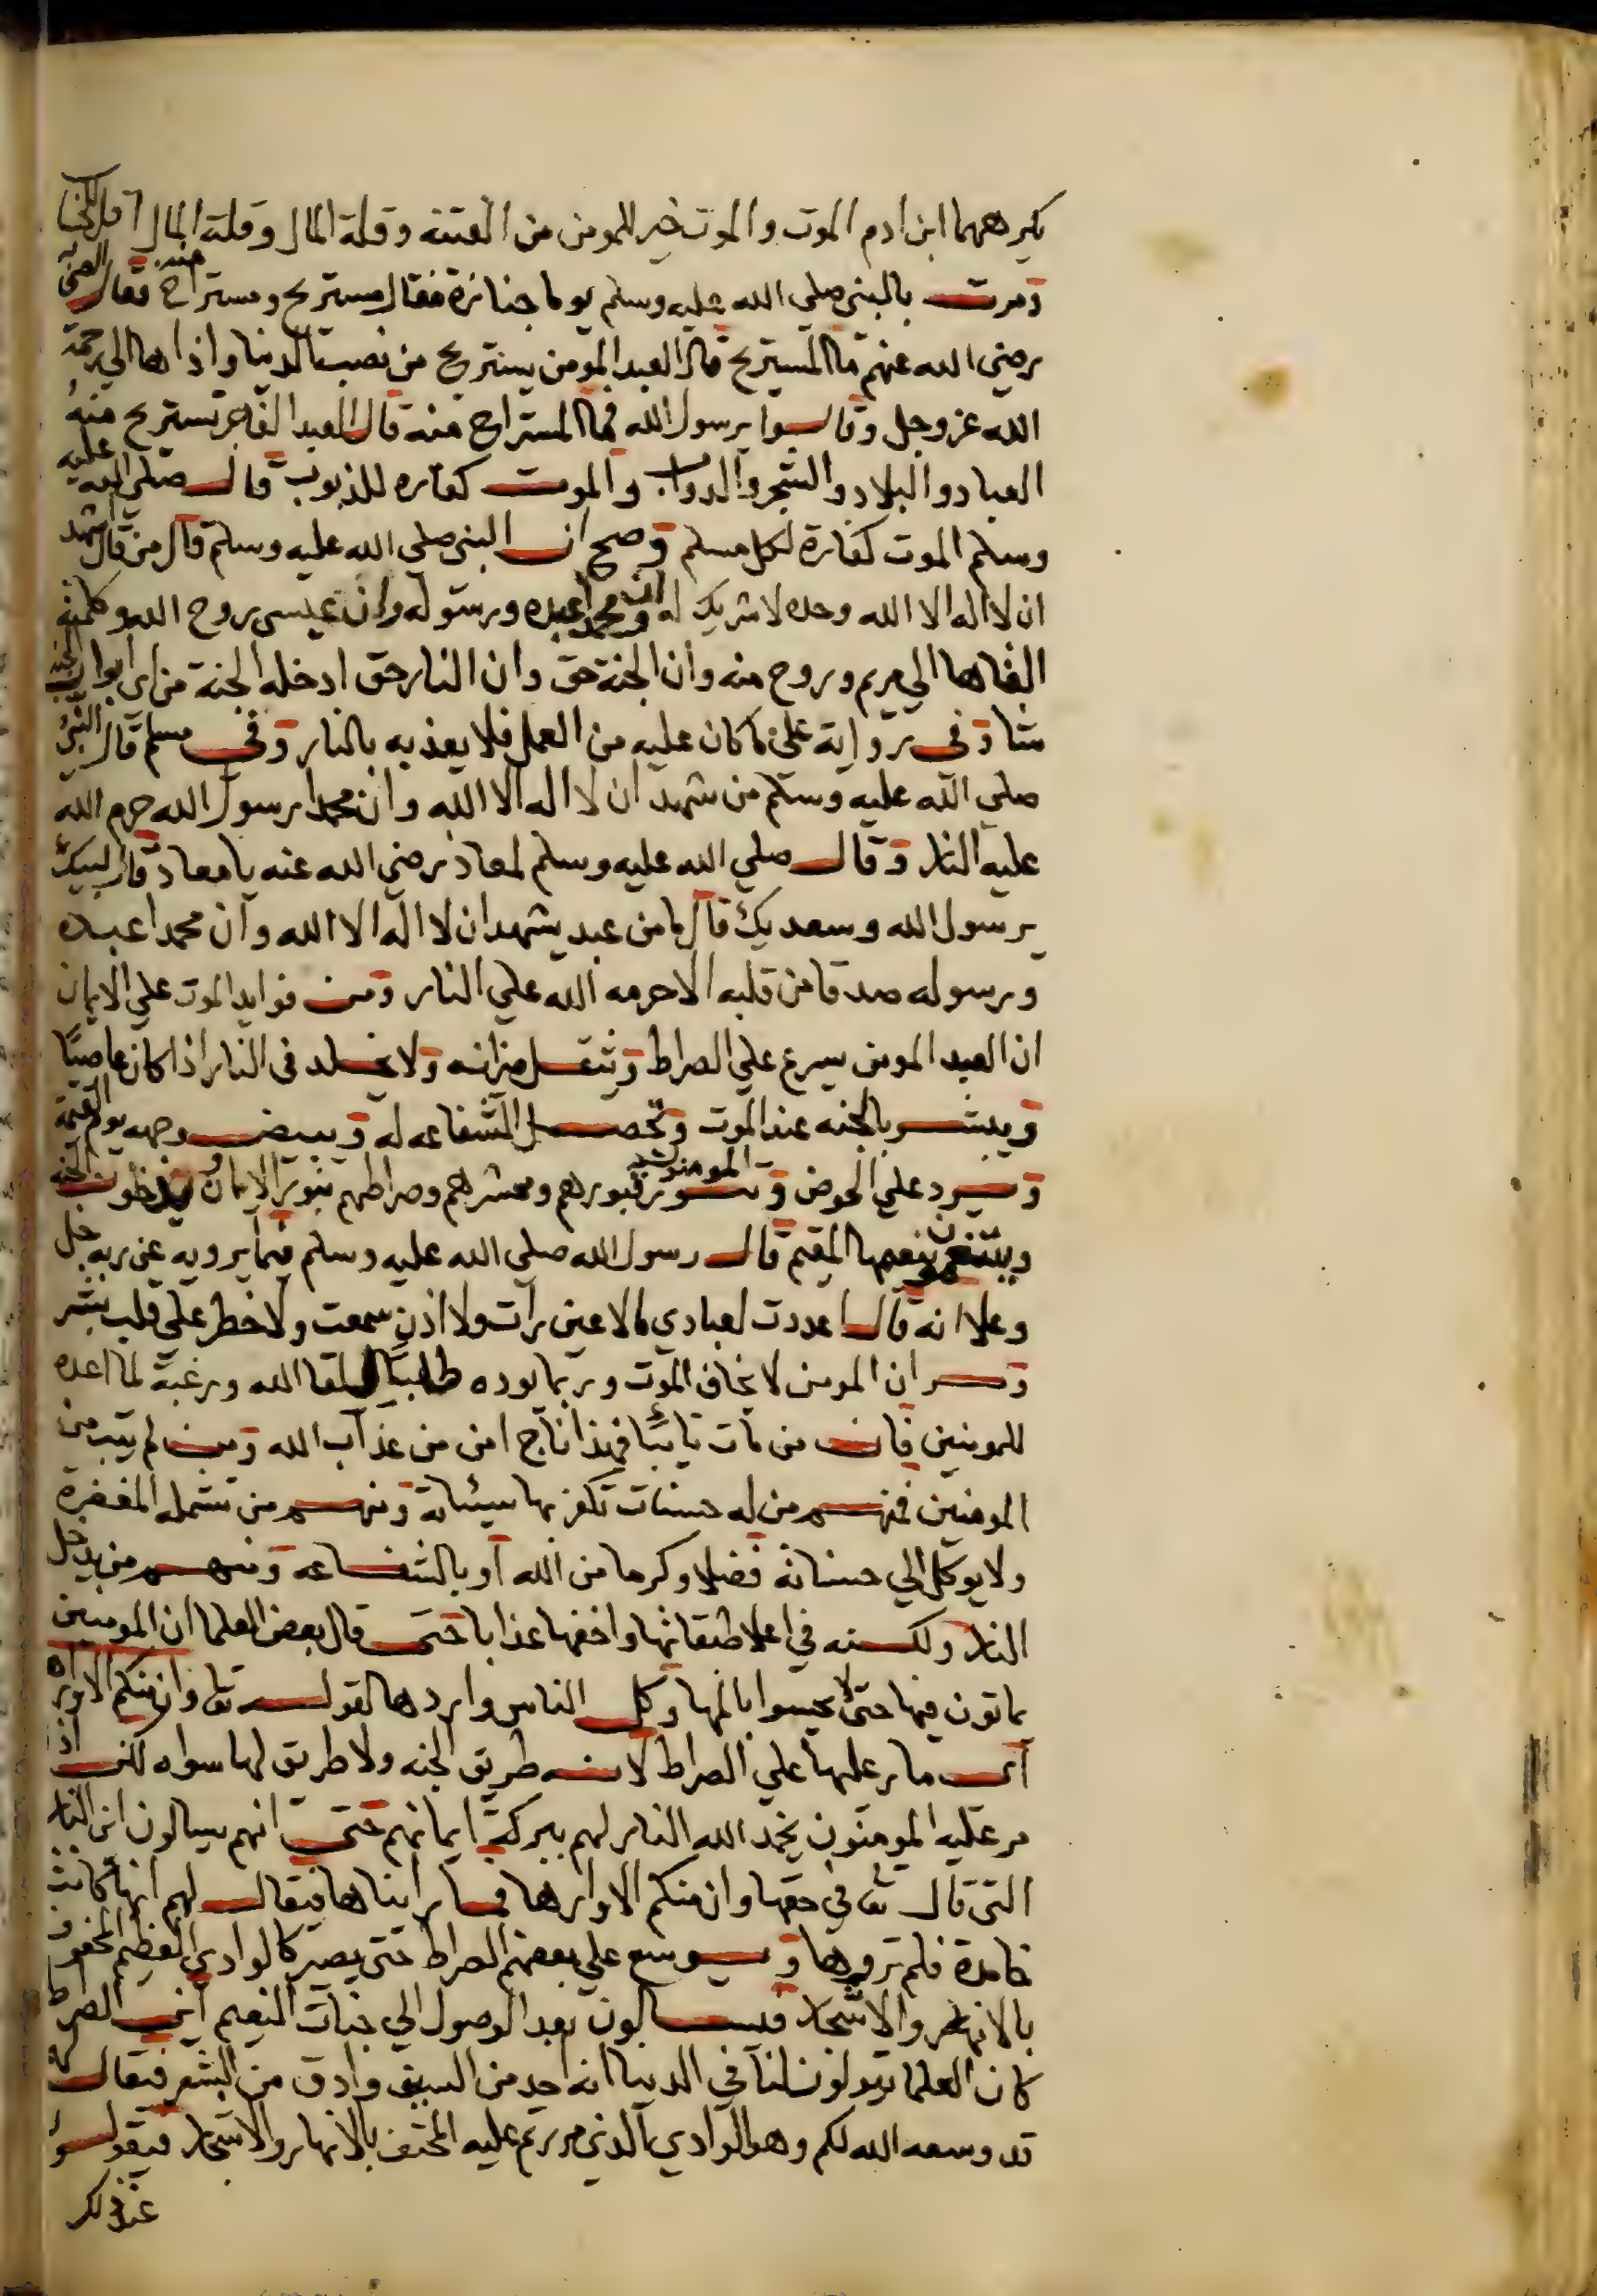 يكرههما ابن ادم الموت والموت خير للمومن من الفتنة وقلة المال وقلة المال اقل للحسا
ومرت بالنبي صلي الله عليه وسلم يوما جنازة فقال مستريح ومستراح منه فقال الصحابه
رضي الله عنهم ما المستريح قال العبد المومن يستريح من نصب الدنيا واذاها الي رحمة
الله عز وجل وقالوا يرسول الله فما المستراح منه قال العبد الفاجر تستريح منه
العباد والبلاد والشجر والدواب والموت كفاره للذنوب قال صلي الله عليه
وسلم الموت كفارة لكل مسلم وصح ان النبي صلي الله عليه وسلم قال من قال اشهد
ان لا اله الا الله وحده لا شريك له وان محمدا عبده ورسوله وان عيسي روح الله وكلمته
القاها الي مريم وروح منه وان الجنة حق وان النار حق ادخله الجنة من اى ابواب الجنه
شا وفى رواية علي ما كان عليه من العمل فلا يعذبه بالنار وفي مسلم قال النبي
صلي الله عليه وسلم من شهد ان لا اله الا الله وان محمدا رسول الله حرم الله
عليه النار وقال صلي الله عليه وسلم لمعاذ رضي الله عنه يا معاذ قال لبيك
يرسول الله وسعديك قال ما من عبد يشهد ان لا اله الا الله وان محمدا عبده
ورسوله صدقا من قلبه الا حرمه الله علي النار ومن فوايد الموت علي الايمان
ان العبد المومن يسرع علي الصراط وتثقل ميزانه ولا يخلد فى النار اذا كان عاصيا
ويبشر بالجنه عند الموت وتحصل الشفاعه له ويبيض وجهه يوم القيمة
ويرد علي الحوض وتنور قبورهم ومحشرهم وصراطهم بنور الايمان ويدخلون الجنه
ويتنعمون بنعيمها المقيم قال رسول الله صلي الله عليه وسلم فيما يرويه عن ربه جل
وعلا انه قال اعددت لعبادي ما لا عين رات ولا اذن سمعت ولا خطر علي قلب بشر
ان المومن لا يخاف الموت وربما يوده طلبا للقا الله ورغبة لما اعده
للمومنين فان من مات تايبا فهذا ناج امن من عذاب الله ومن لم يتب من
المومنين فمنهم من له حسنات تكفر بها سيئاته ومنهم من تشمله المغفرة
ولا يوكل الي حسناته فضلا وكرما من الله او بالشفاعه ومنهم من يدخل
النار ولكنه في اعلا طبقاتها واخفها عذابا حتى قال بعض العلما ان المومنين
يماتون فيها حتى لا يحسوا بالمها وكل الناس واردها لقوله تعا وان منكم الا واردها
اى مار عليها علي الصراط لانه طريق الجنه ولا طريق لها سواه لكن اذا
مر عليه المومنون يخمد الله النار لهم ببركة ايمانهم حتى انهم يسالون اين النار
التى قال تعا في حقها وان منكم الا واردها فما راينا ها فيقال لهم انها كانت
خامدة فلم تروها ويوسع علي بعضهم الصراط حتى يصير كالوادي العظيم المحفوف
بالانهار والاشجار فيسالون بعد الوصول الي جنات النعيم اين الصراط
كان العلما يقولون لنا في الدنيا انه احد من السيف وادق من الشعر فيقال لهم
قد وسعه الله لكم وهو الوادي الذي مررتم عليه المحتف بالانهار والاشجار فيقولوا
عند ذلك